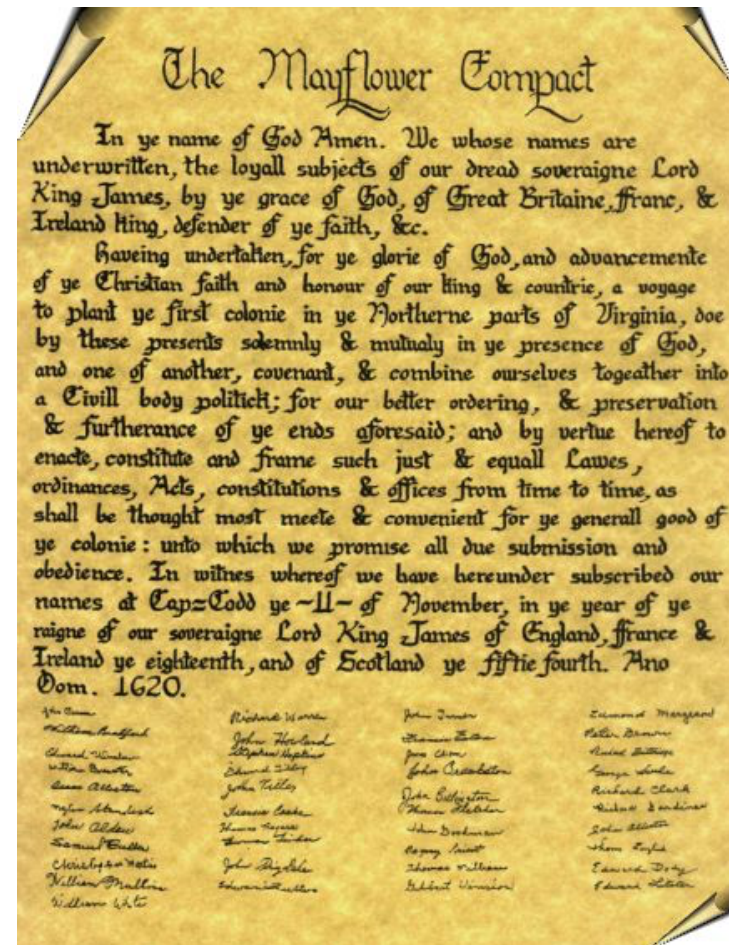 The Mayflower Compact
In ye name of God Amen. We whose names are
underwritten, the loyall subjects of our dread soveraigne Lord
King James, by ye grace of God, of Great Britaine, ffranc, &
Ireland king, defender of ye faith, &c.
Haveing undertaken, for ye glorie of God, and advancemente
of ye Christian faith and honour of our king & countrie, a voyage
to plant ye first colonie in ye Northerne parts of Virginia, doe
by these presents solemnly & mutualy in ye presence of God,
and one of another, covenant, & combine ourselves togeather into
a Civill body politick; for our better ordering, & preservation
& furtherance of ye ends aforesaid; and by vertue hereof to
enacte, constitute and frame such just & equall Lawes,
ordinances, Acts, constitutions & offices from time to time, as
shall be thought most meete & convenient for ye generall good of
ye colonie: unto which we promise all due submission and
obedience. In witnes whereof we have hereunder subscribed our
names at Cap=Codd ye ~11~ of November, in ye year of ye
raigne of our soveraigne Lord King James of England, ffrance &
Ireland ye eighteenth, and of Scotland ye fiftie fourth. Ano
Dom. 1620.
William Bradford
Edward Winslow
Isaac Allerton
John Alden
Samuel Fuller
William Mullins
William White
Richard Warren
John Howland
Stephen Hopkins
John Tilley
Francis Cooke
Thomas Rogers
John Turner
Francis Eaton
John Crackston
John Billington
John Goodman
Thomas Williams
Gilbert Winslow
Edmond Margeson
Peter Brown
Richard Clark
Richard Gardiner
John Allerton
Edward Doty